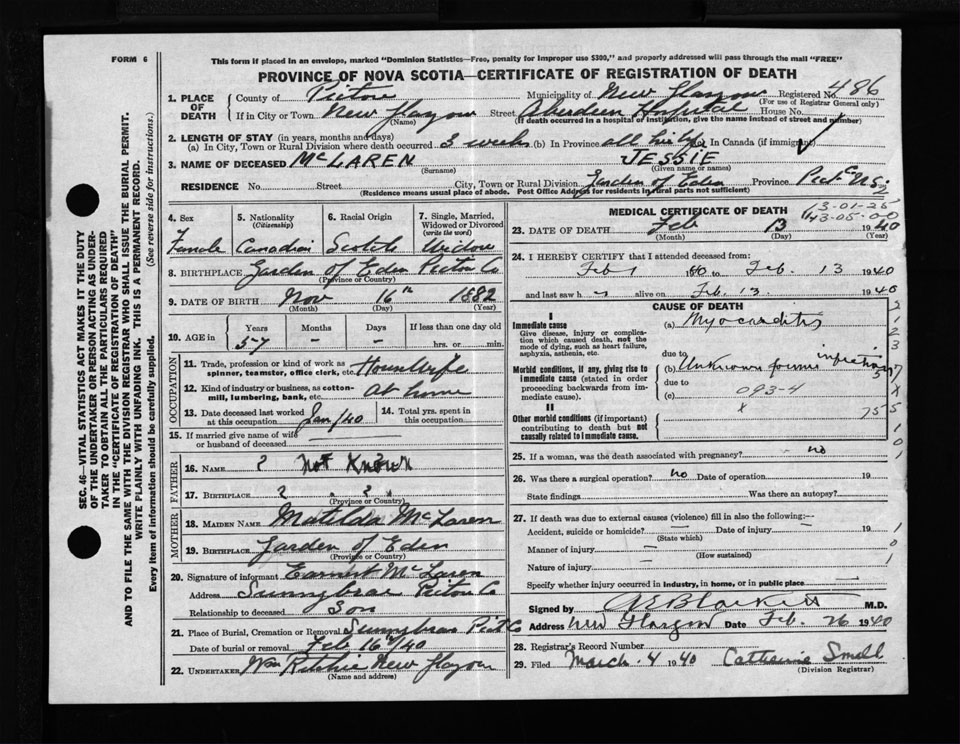 FORM 6
This form if placed in an envelope, marked "Dominion Statistics—Free, penalty for improper use $300," and properly addressed will pass through the mail "FREE"
PROVINCE OF NOVA SCOTIA—CERTIFICATE OF REGISTRATION OF DEATH
1. PLACE OF DEATH County of Pictou Municipality of New Glasgow Registered No. 486
(For use of Registrar General only)
If in City or Town New Glasgow Street Aberdeen Hospital House No.
(Name) (If death occurred in a hospital or institution, give the name instead of street and number)
2. LENGTH OF STAY (in years, months and days)
(a) In City, Town or Rural Division where death occurred 3 weeks (b) In Province all his life (c) In Canada (if immigrant)
3. NAME OF DECEASED McLAREN JESSIE
(Surname) (Given name or names)
RESIDENCE No. Street City, Town or Rural Division Garden of Eden Province Pict. Co N.S.
(Residence means usual place of abode. Post Office Address for residents in rural parts not sufficient)
2
4. Sex Female
5. Nationality (Citizenship) Canadian
6. Racial Origin Scotch
7. Single, Married, Widowed or Divorced (write the word) Widow
8. BIRTHPLACE Garden of Eden Pictou Co
(Province or Country)
9. DATE OF BIRTH Nov 16th 1882
(Month) (Day) (Year)
10. AGE in Years Months Days If less than one day old
57 – – hrs. or min.
OCCUPATION
11. Trade, profession or kind of work as spinner, teamster, office clerk, etc. Housewife
12. Kind of industry or business, as cotton-mill, lumbering, bank, etc. At home
13. Date deceased last worked at this occupation Jan/40
14. Total yrs. spent in this occupation
15. If married give name of wife or husband of deceased
FATHER
16. Name ? Not Known
17. Birthplace ? ?
(Province or Country)
MOTHER
18. Maiden Name Matilda McLaren
19. Birthplace Garden of Eden
(Province or Country)
20. Signature of informant Earnest McLaren
Address Sunnybrae Pictou Co
Relationship to deceased Son
21. Place of Burial, Cremation or Removal Sunnybrae Pict Co
Date of burial or removal Feb 16th/40
22. UNDERTAKER Wm Ritchie New Glasgow
(Name and address)
MEDICAL CERTIFICATE OF DEATH
13-01-25
43-05-00
23. DATE OF DEATH Feb 13 1940
(Month) (Day) (Year)
24. I HEREBY CERTIFY that I attended deceased from:
Feb 1 1940 to Feb. 13 1940
and last saw h alive on Feb. 13 1940
CAUSE OF DEATH
I
Immediate cause
Give disease, injury or complication which caused death, not the mode of dying, such as heart failure, asphyxia, asthenia, etc.
(a) Myocarditis
due to
Morbid conditions, if any, giving rise to immediate cause (stated in order proceeding backwards from immediate cause).
(b) Unknown former infection
due to
(c) 093-4
x
II
Other morbid conditions (if important) contributing to death but not causally related to I immediate cause.
25. If a woman, was the death associated with pregnancy? no
26. Was there a surgical operation? no Date of operation 19
State findings Was there an autopsy?
27. If death was due to external causes (violence) fill in also the following:—
Accident, suicide or homicide? — Date of injury 19
(State which)
Manner of injury —
(How sustained)
Nature of injury —
Specify whether injury occurred in industry, in home, or in public place —
Signed by A E Blackett M.D.
Address New Glasgow Date Feb. 26 1940
28. Registrar's Record Number
29. Filed March 4 1940 Catherine Small
(Division Registrar)
SEC. 46—VITAL STATISTICS ACT MAKES IT THE DUTY
OF THE UNDERTAKER OR PERSON ACTING AS UNDER-
TAKER TO OBTAIN ALL THE PARTICULARS REQUIRED
IN THE "CERTIFICATE OF REGISTRATION OF DEATH"
AND TO FILE THE SAME WITH THE DIVISION REGISTRAR WHO SHALL ISSUE THE BURIAL PERMIT.
WRITE PLAINLY WITH UNFADING INK. THIS IS A PERMANENT RECORD.
Every item of information should be carefully supplied. (See reverse side for instructions.)